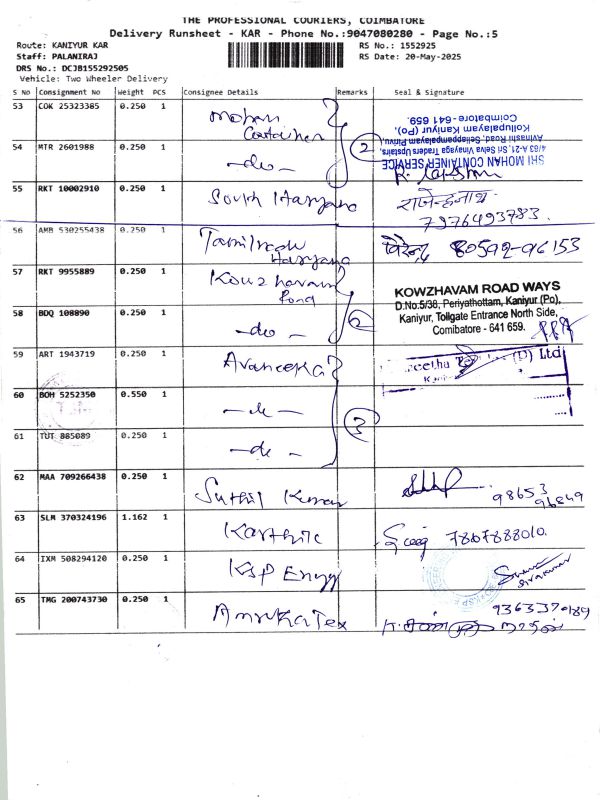 THE PROFESSIONAL COURIERS, COIMBATORE
Delivery Runsheet - KAR - Phone No.:9047080280 - Page No.:5
Route: KANIYUR KAR
Staff: PALANIRAJ
DRS No.: DCJB155292505
Vehicle: Two Wheeler Delivery
RS No.: 1552925
RS Date: 20-May-2025
S No Consignment No Weight PCS Consignee Details Remarks Seal & Signature
53 COK 25323385 0.250 1 Mohan Container
SRI MOHAN CONTAINER SERVICE
4/83-A-21, Sri Selva Vinayaga Traders Upstairs,
Avinashi Road, Sellappampalayam Pirivu,
Kollupalayam Kaniyur (Po),
Coimbatore-641 659.
54 MTR 2601988 0.250 1 -do- 2
55 RKT 10002910 0.250 1 South Haryana
7976493783
56 AMB 530255438 0.250 1 Tamilnadu Haryana 80592-96153
57 RKT 9955889 0.250 1 Kowzhavam Road
KOWZHAVAM ROAD WAYS
D.No.5/38, Periyathottam, Kaniyur (Po),
Kaniyur, Tollgate Entrance North Side,
Comibatore - 641 659.
58 BDQ 108890 0.250 1 -do- 2
59 ART 1943719 0.250 1 Avaneetha
(P) Ltd
60 BOH 5252350 0.550 1 -do-
61 TUT 885089 0.250 1 -do- 3
62 MAA 709266438 0.250 1 Suthil Kumar 98653 96849
63 SLM 370324196 1.162 1 Karthik 7867888010
64 IXM 508294120 0.250 1 KSP Engg
65 TMG 200743730 0.250 1 AmrKaTex